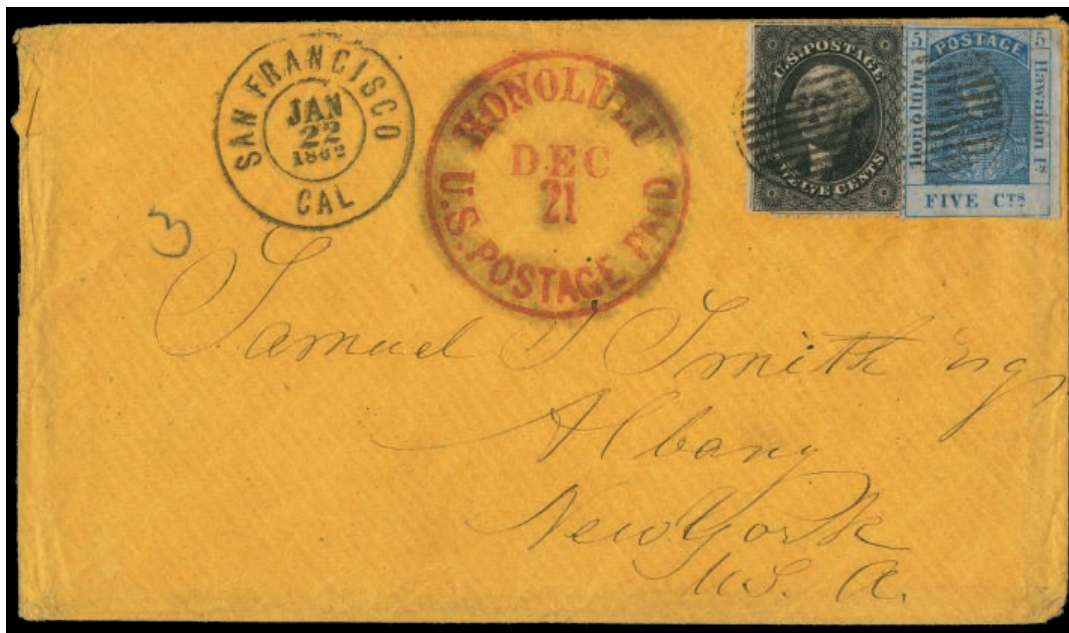 SAN FRANCISCO
JAN
22
CAL
HONOLULU
DEC
21
U.S. POSTAGE PAID
U.S. POSTAGE
CENTS
5 POSTAGE 5
Honolulu
Hawaiian Is
FIVE CTS
3
Samuel Smith
Albany
New York
U.S. A.